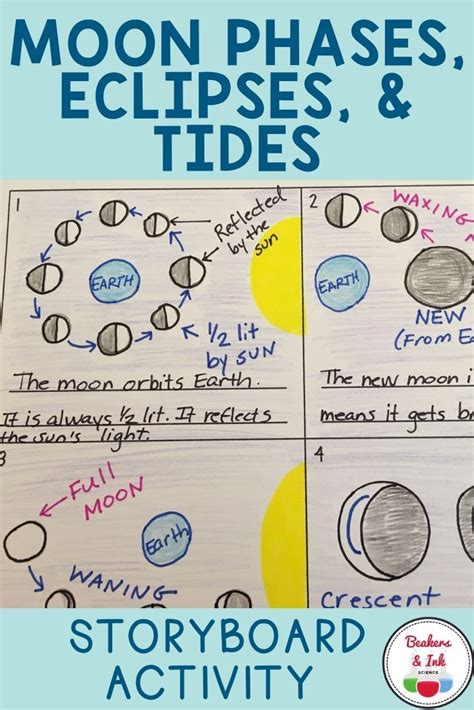 MOON PHASES,
ECLIPSES, &
TIDES
1
Reflected
by the
sun
EARTH
1/2 lit
by SUN
The moon orbits Earth.
It is always 1/2 lit. It reflects
the sun's light.
2
WAXING
EARTH
NEW
(From
The new moon
means it gets
3
Full
MOON
Earth
WANING
4
Crescent
STORYBOARD
ACTIVITY
Beakers
& Ink
SCIENCE